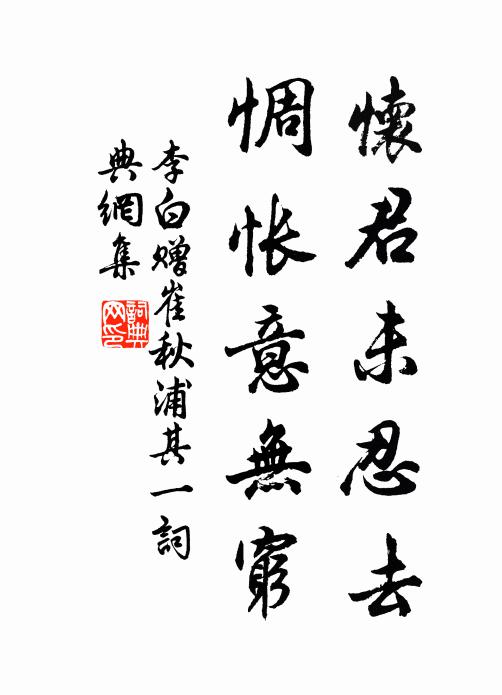 懷君未忍去
惆悵意無窮
李白贈崔秋浦其一詞
典網集
詞典
网印